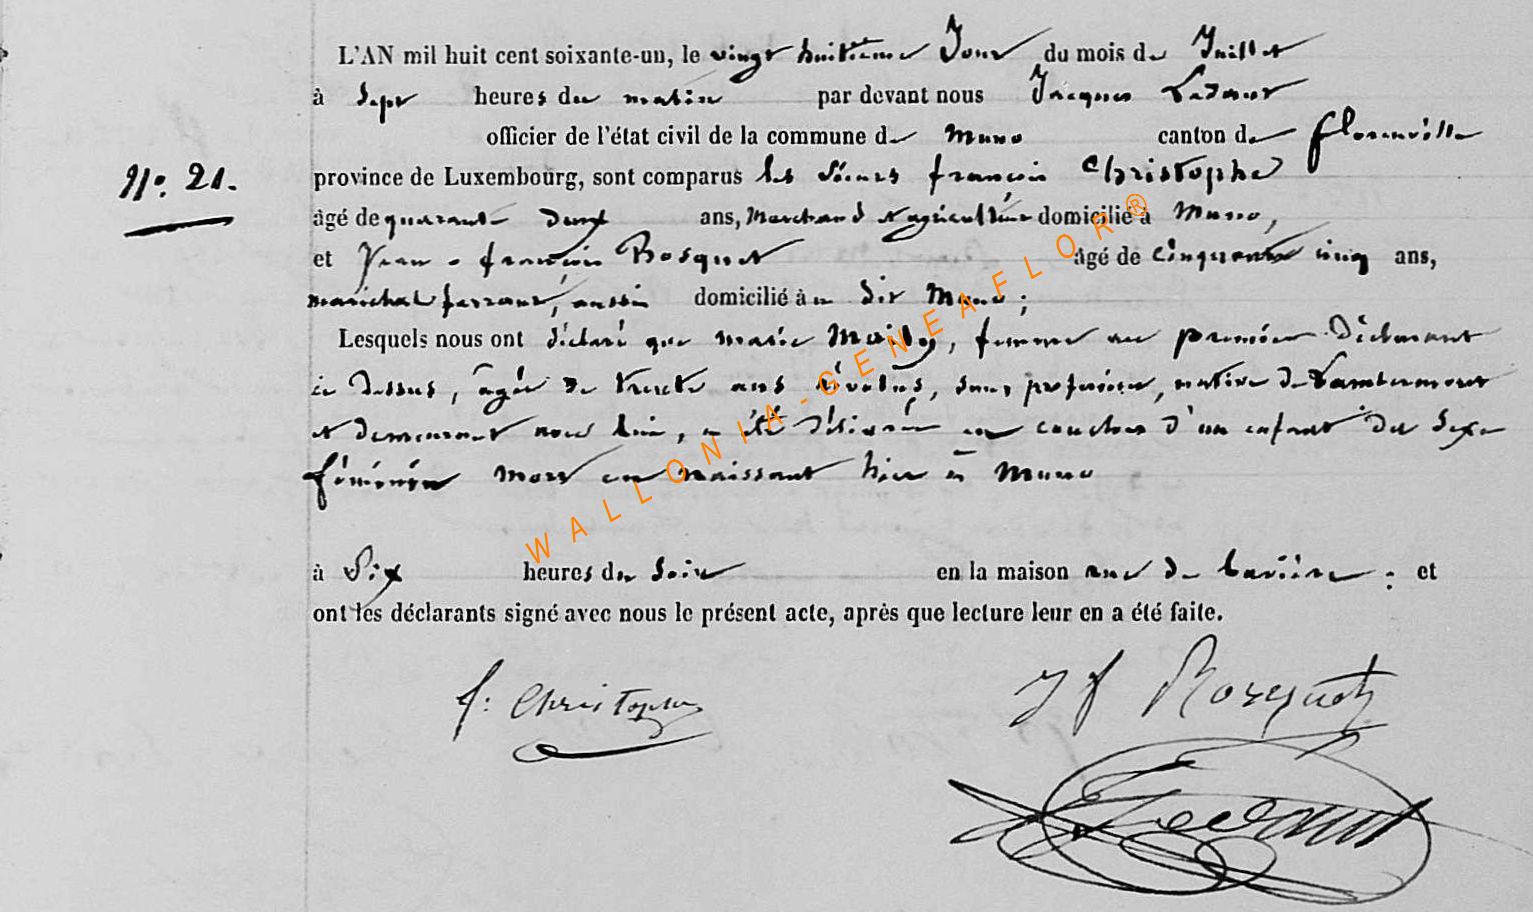 L'AN mil huit cent soixante-un, le vingt huitième Jour du mois de Juillet
à Sept heures du matin par devant nous Jacques
officier de l'état civil de la commune de Muno canton de florenville
N°. 21.
province de Luxembourg, sont comparus les Sieurs françois Christophe
âgé de quarante deux ans, Marchand et agriculteur domicilié à Muno,
et Jean-françois Bosquet âgé de cinquante cinq ans,
maréchal ferrant, aussi domicilié à u dit Muno ;
Lesquels nous ont déclaré que marie Mailly, femme au premier Déclarant
ci dessus, âgée de trente ans révolus, sans profession, native de Lambermont
et demeurant avec lui, a été délivrée en couches d'un enfant du Sexe
féminin mort en naissant hier à Muno
à Six heures du Soir en la maison rue de ; et
ont les déclarants signé avec nous le présent acte, après que lecture leur en a été faite.
f: Christophe
J f Bosquet
WALLONIA-GENEAFLOR®